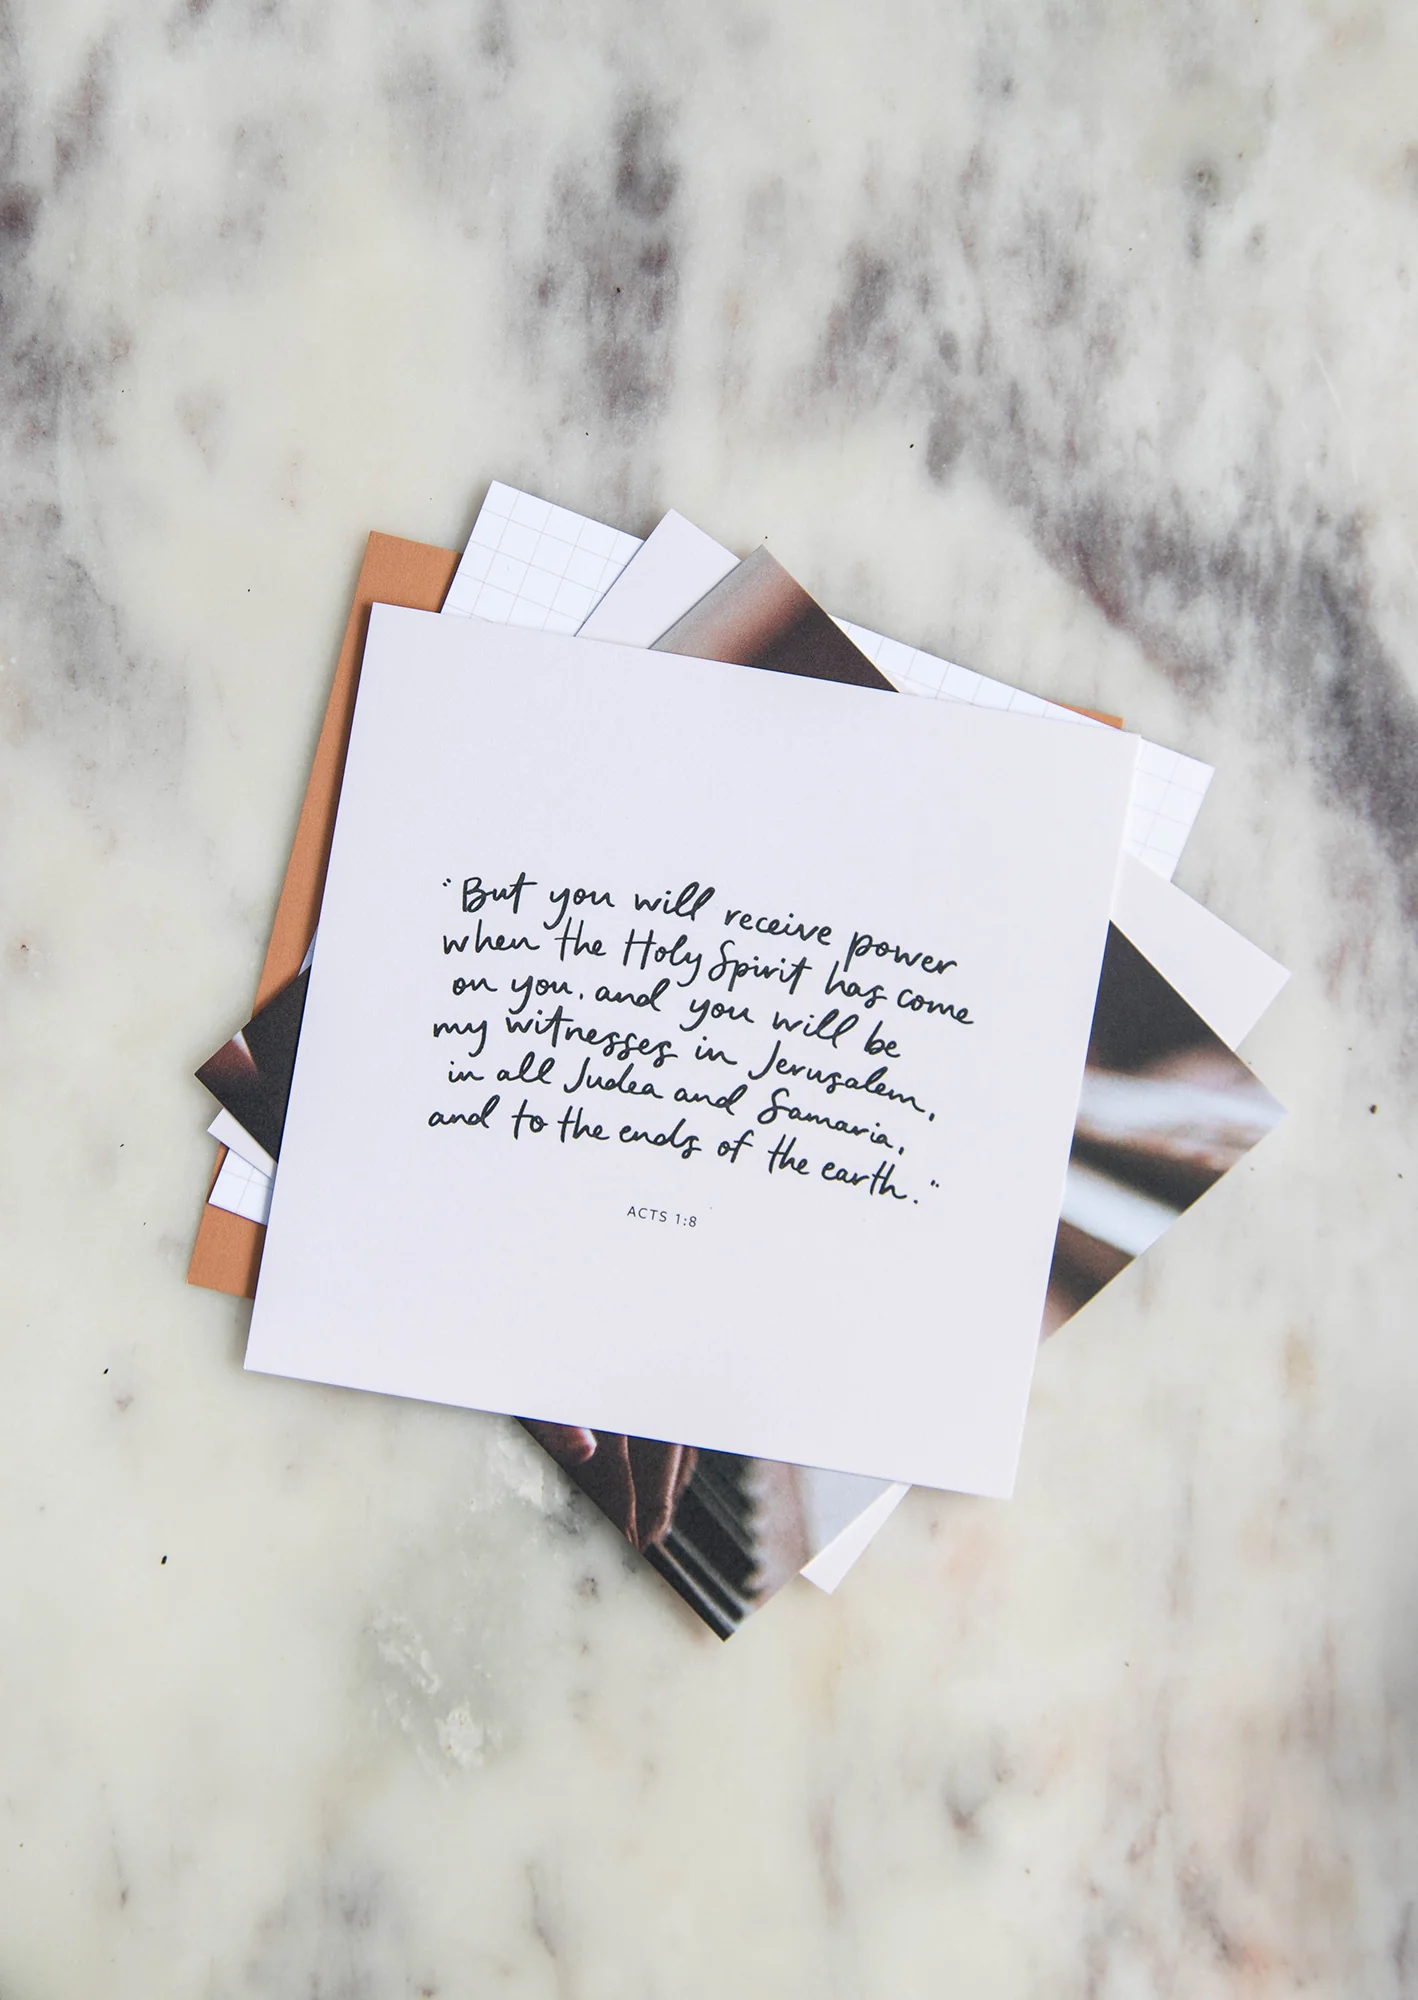 "But you will receive power
when the Holy Spirit has come
on you, and you will be
my witnesses in Jerusalem,
in all Judea and Samaria,
and to the ends of the earth."
ACTS 1:8